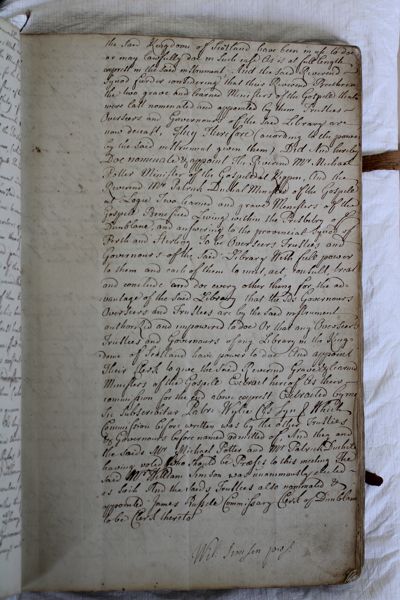 the Said Kingdome of Scotland have been in use to doe
or may Lawfully doe in such case As is at full length
exprest in the said instrument. And the said Reverend
Synod further considering that these Reverend Brethren
the two grave and learned Ministers of the Gospell that
were last nominated and appointed by them Trustees
Overseers and Governours of the said Library are
now deceast, They Therefore (according to the power
by the said instrument given them) Did And hereby
Doe nominate & appoint The Reverend Mr Michael
Potter Minister of the Gospell at Kippen, And the
Reverend Mr Patrick Minister of the Gospell
at Logie Two learned and grave Ministers of the
Gospell Beneficed Living within the Presbitry of
Dunblane, and answering to the provinciall Synod of
Perth and Sterling To be Overseers Trustees and
Governours of the Said Library With full power
to them and each of them to meet, act, consult, treat
and conclude and doe every other thing for the ad=
vantage of the Said Library that the Sds Governours
Overseers and Trustees are by the said instrument
authorized and empowered to doe Or that any Overseers
Trustees and Governours of any Library in the King=
dome of Scotland have power to doe And appoint
Their Clerk to give the said Reverend Grave & learned
Ministers of the Gospell Extract hereof As theire
commission for the end above exprest Extracted by me
Sic Subscribitur Wylie Cls Syn: Which
Commission before written was by the other Trustees
& Governours before named admitted of, And they and
the Saids Mr Michael Potter and Mr Patrick
having voted who should be Preses to this meeting The
Said Mr William Simson was unanimously elected
as such And the Saids Trustees also nominated &
appointed James Russele Commissary Clerk of Dunblane
to be Clerk thereto
Wil: Simson